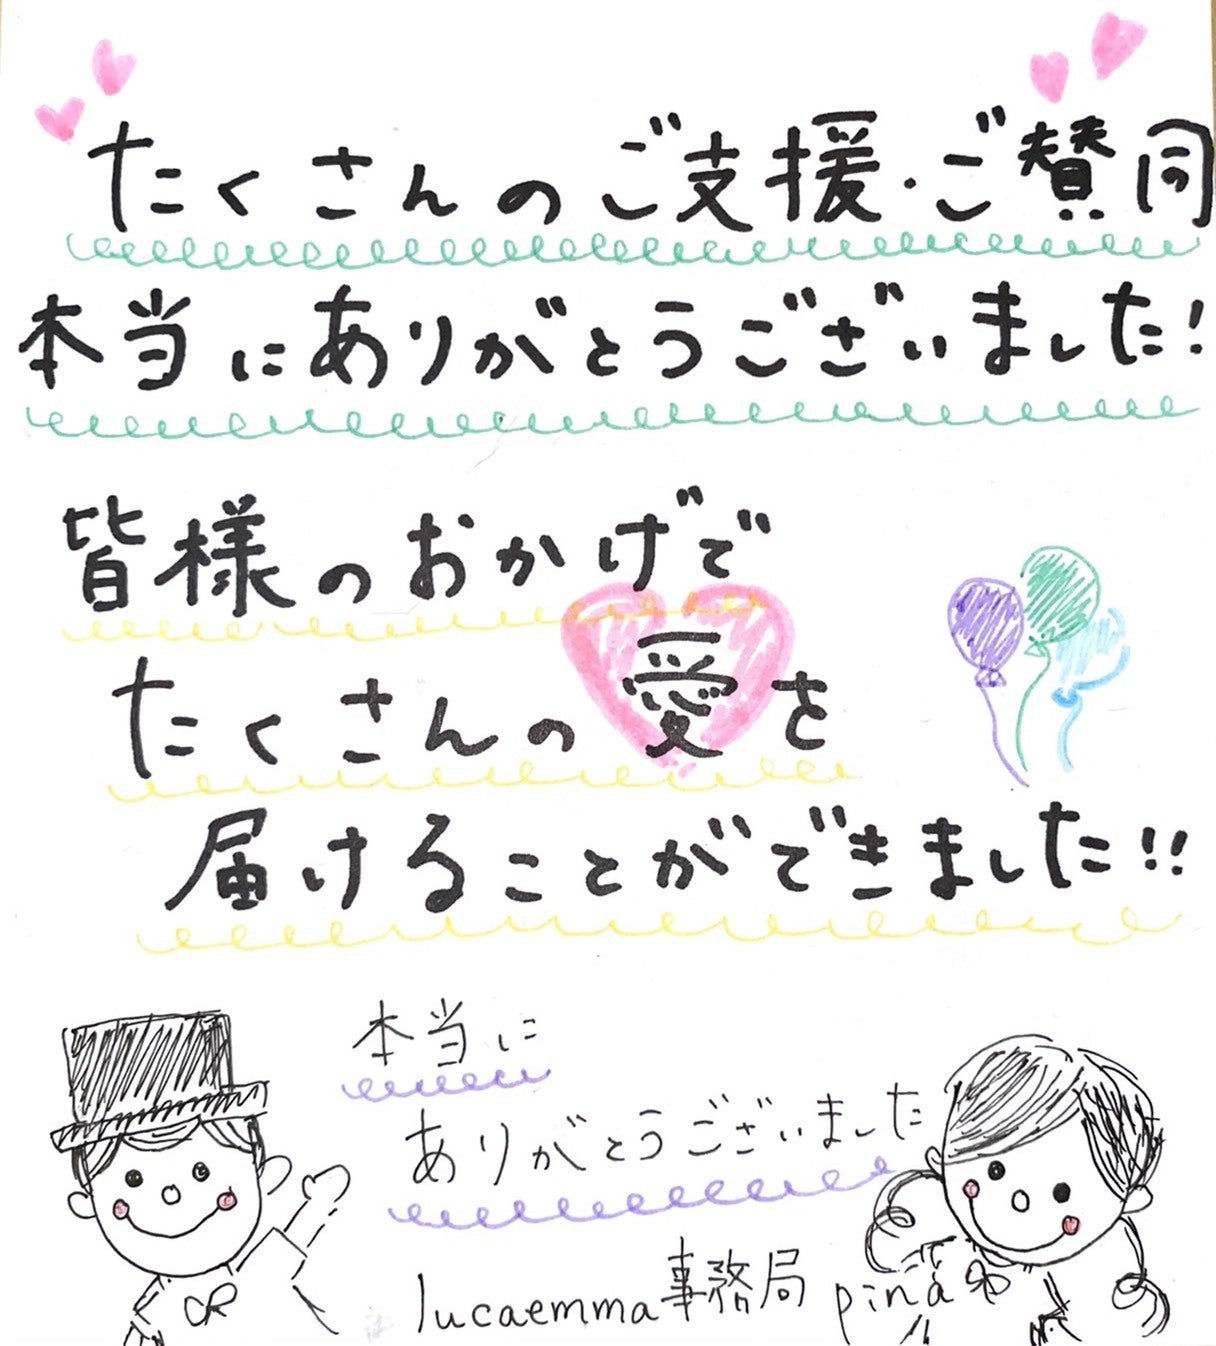 たくさんのご支援・ご賛同
本当にありがとうございました!
皆様のおかげで
たくさんの愛を
届けることができました!!
本当に
ありがとうございました
lucaemma事務局 pina